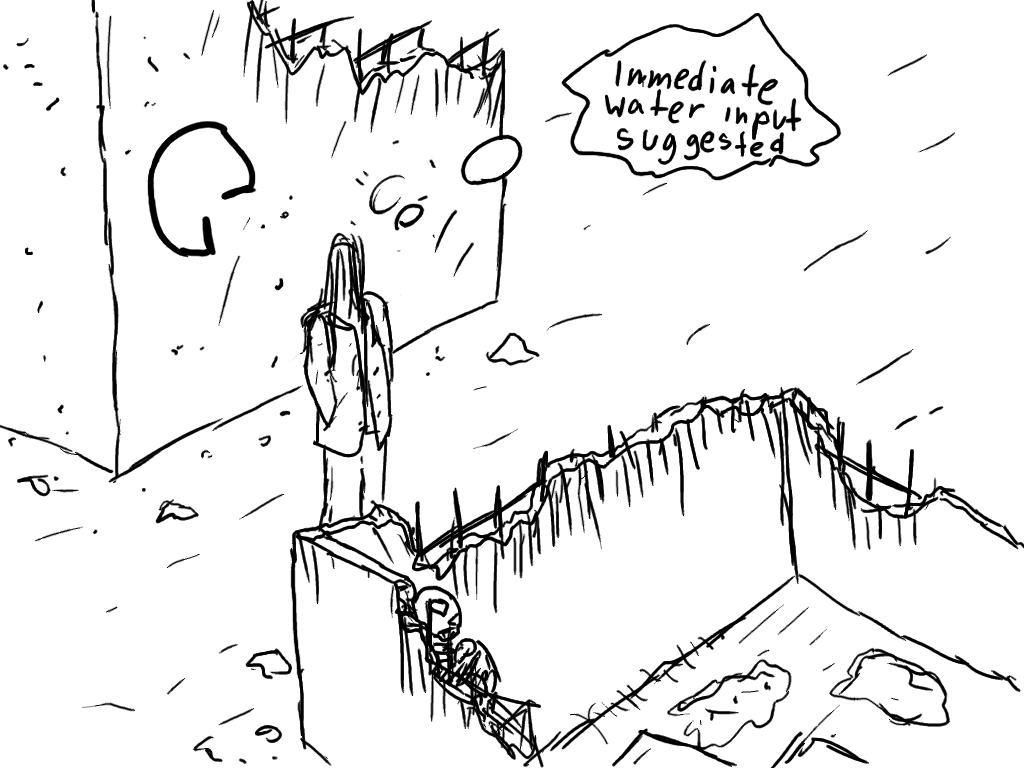 Immediate
water input
suggested